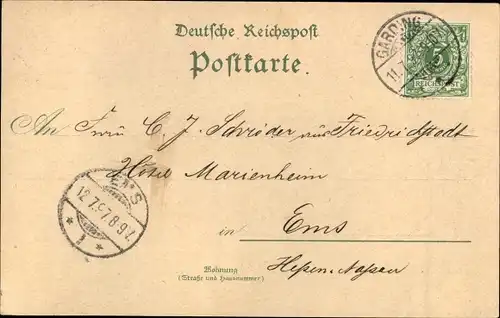 Deutsche Reichspost
Postkarte.
GARDING
11.7
5
REICHSPOST
An Frau C. J. Schröder aus Friedrichstadt
Hôtel Marienheim
EMS
12.7.97.8-9V.
in Ems
Hessen-Nassau
Wohnung
(Straße und Hausnummer)